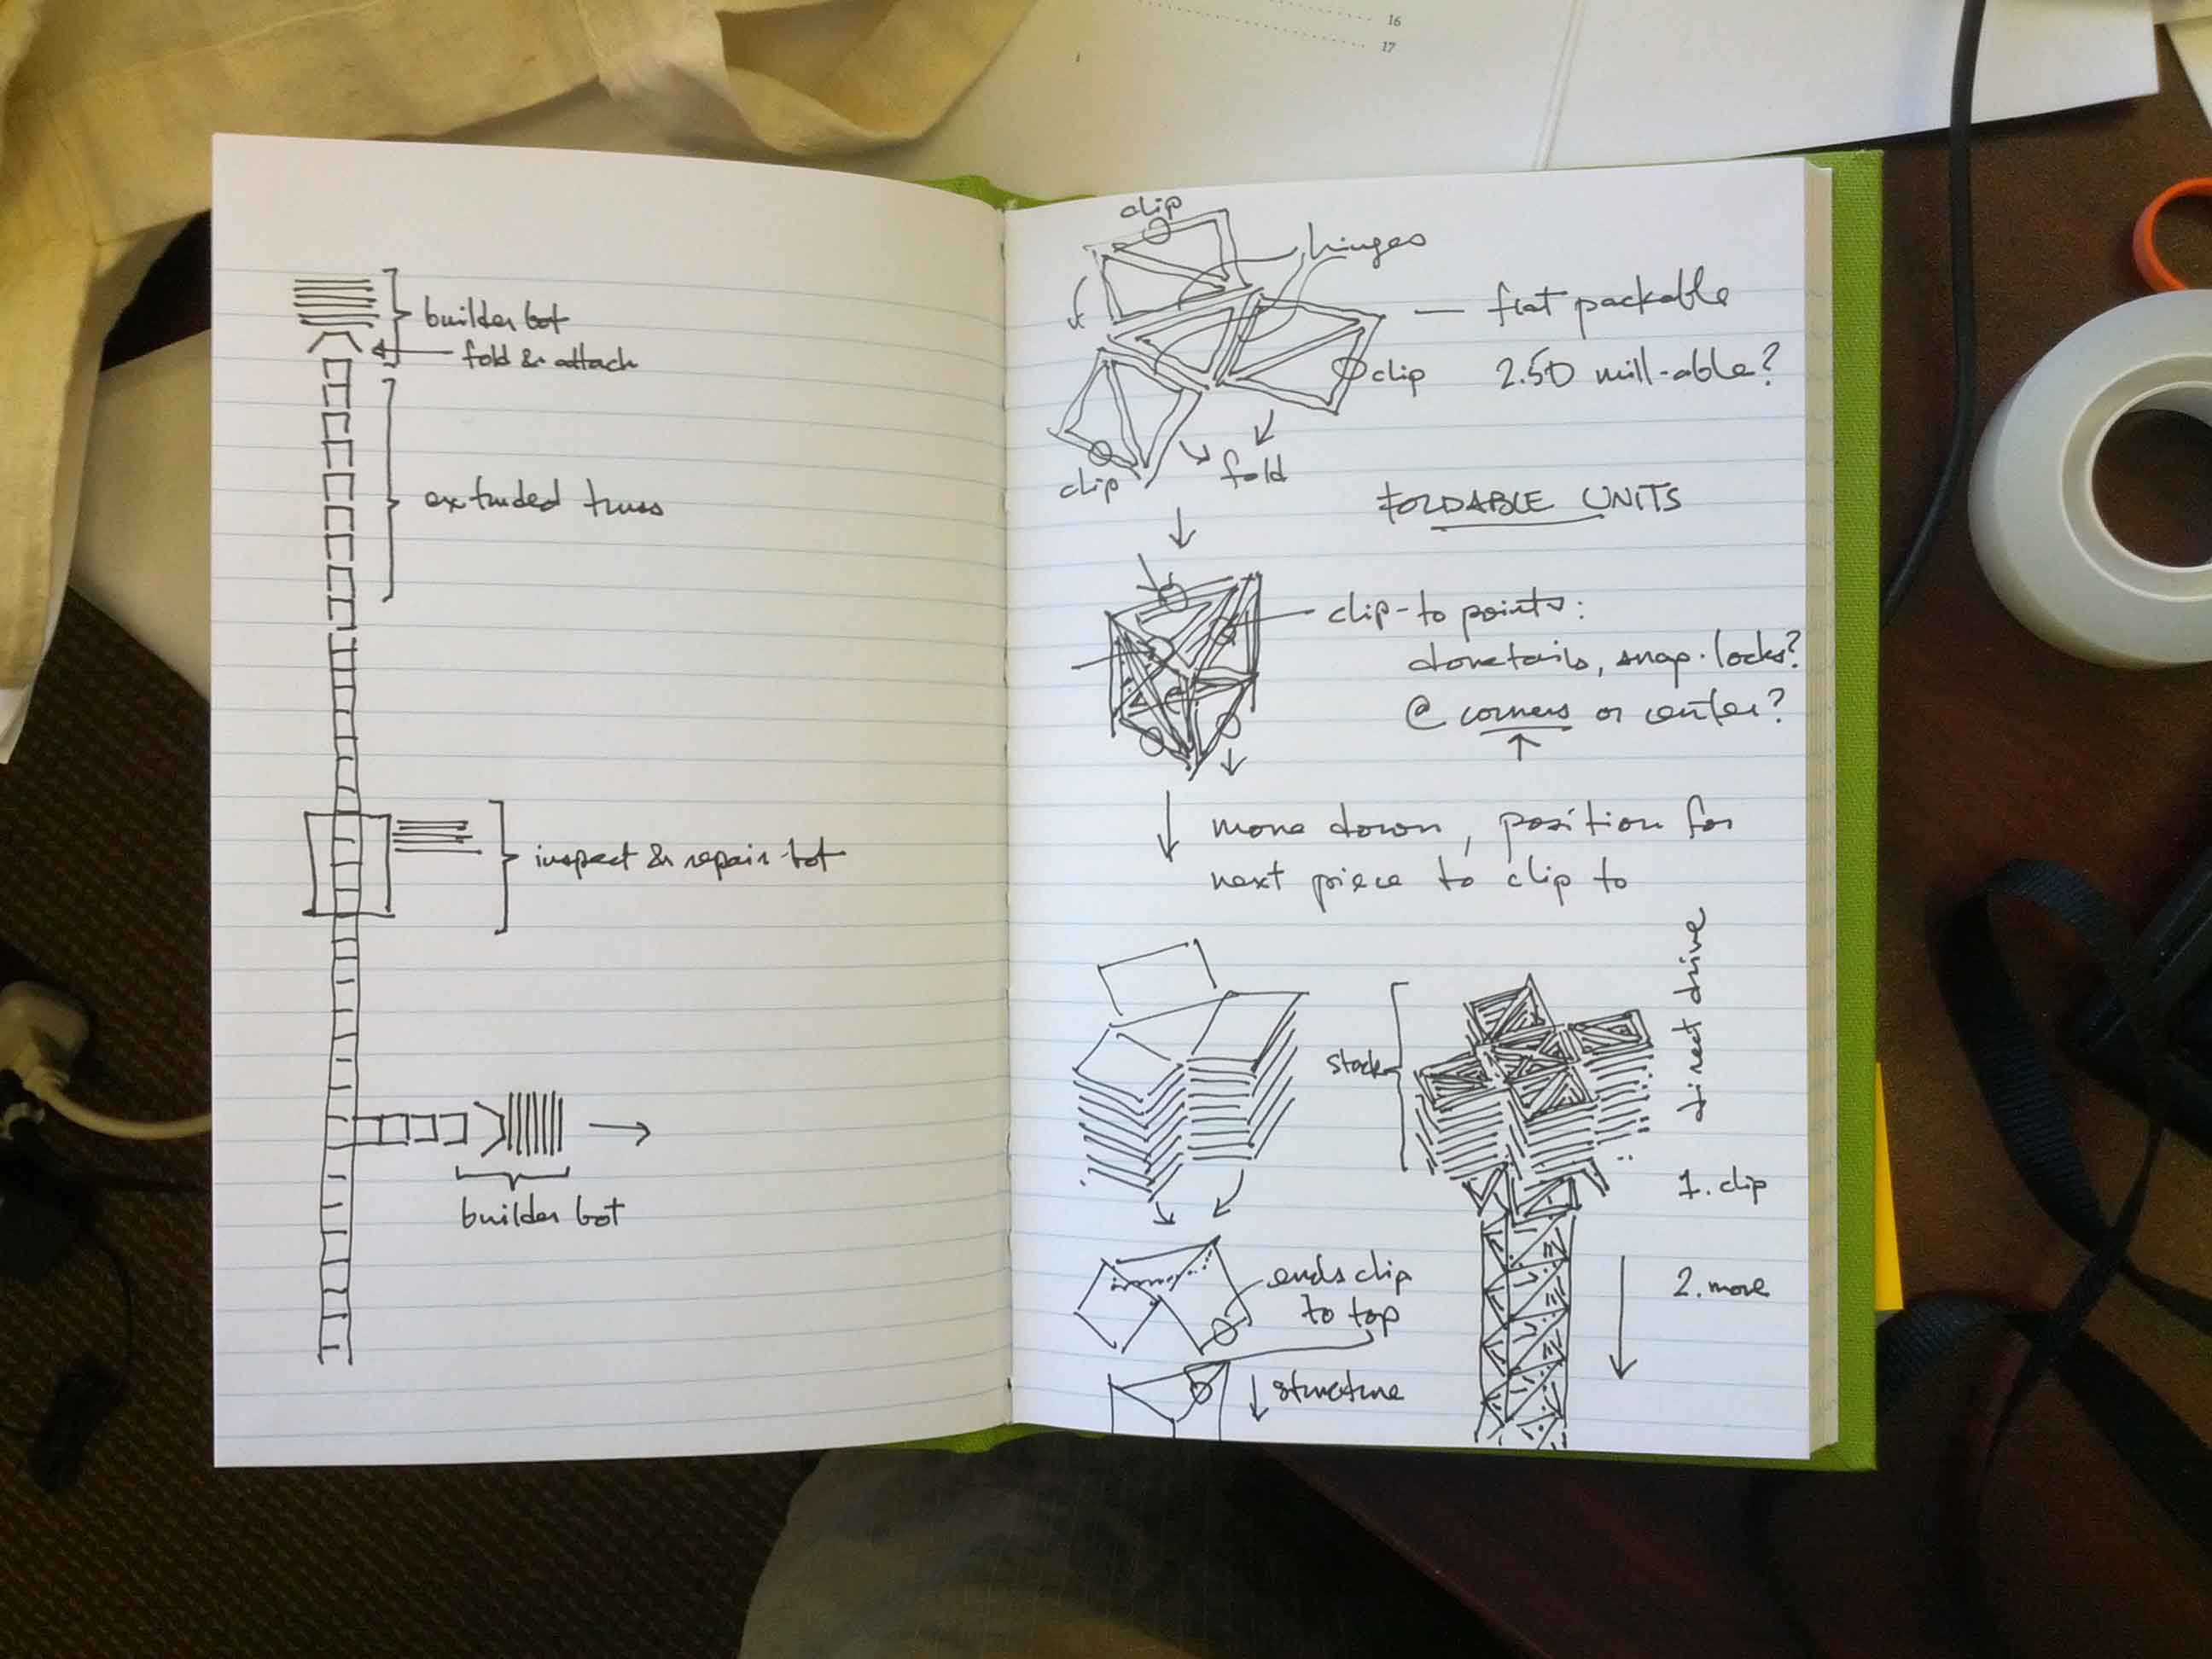 16
17
builder bot
fold & attach
extruded truss
inspect & repair bot
builder bot
clip
hinges
— flat packable
clip
2.5D mill-able?
clip
fold
FOLDABLE UNITS
clip-to points:
dovetails, snap-locks?
@ corners or center?
move down, position for
next piece to clip to
stock
direct drive
1. clip
ends clip
to top
2. move
structure